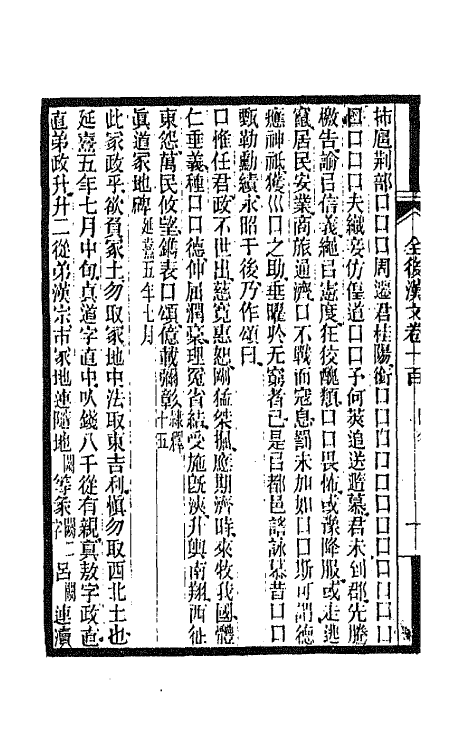 全後漢文卷一百
拂扈荊部口口口周邊君桂陽銜口口口口口口口口口
口口口夫織妾仿偟道口口予何英追送蹈慕君未到郡先騰
檄告諭㠯信義繩㠯憲度狂狡醜類口口畏怖或豫降服或走逃
竄居民安業商旅通濟口不戰而寇息罰未加如口口斯可謂德
應神祇獲巛口之助垂曜於无窮者已是㠯都邑謠詠慕昔口口
甄勒勳績永昭于後乃作頌曰
口惟任君政不世出慈寬惠恕剛猛桀摡應期濟時來牧我國體
仁垂義種口口德伸屈潤枲理冤省結受施旣浹升輿南翔西征
東怨萬民攸望鐫表口頌億載彌彰隸釋十五
真道冢地碑延熹五年七月
此冢政乎欲買冢土勿取冢地中法取東吉利慎勿取西北土也
延熹五年七月中旬真道字直中以錢八千從有親真敖字政直
直弟政升升二從弟漢宗市冢地連隨地闕等篆字闕二呂闕連瀆